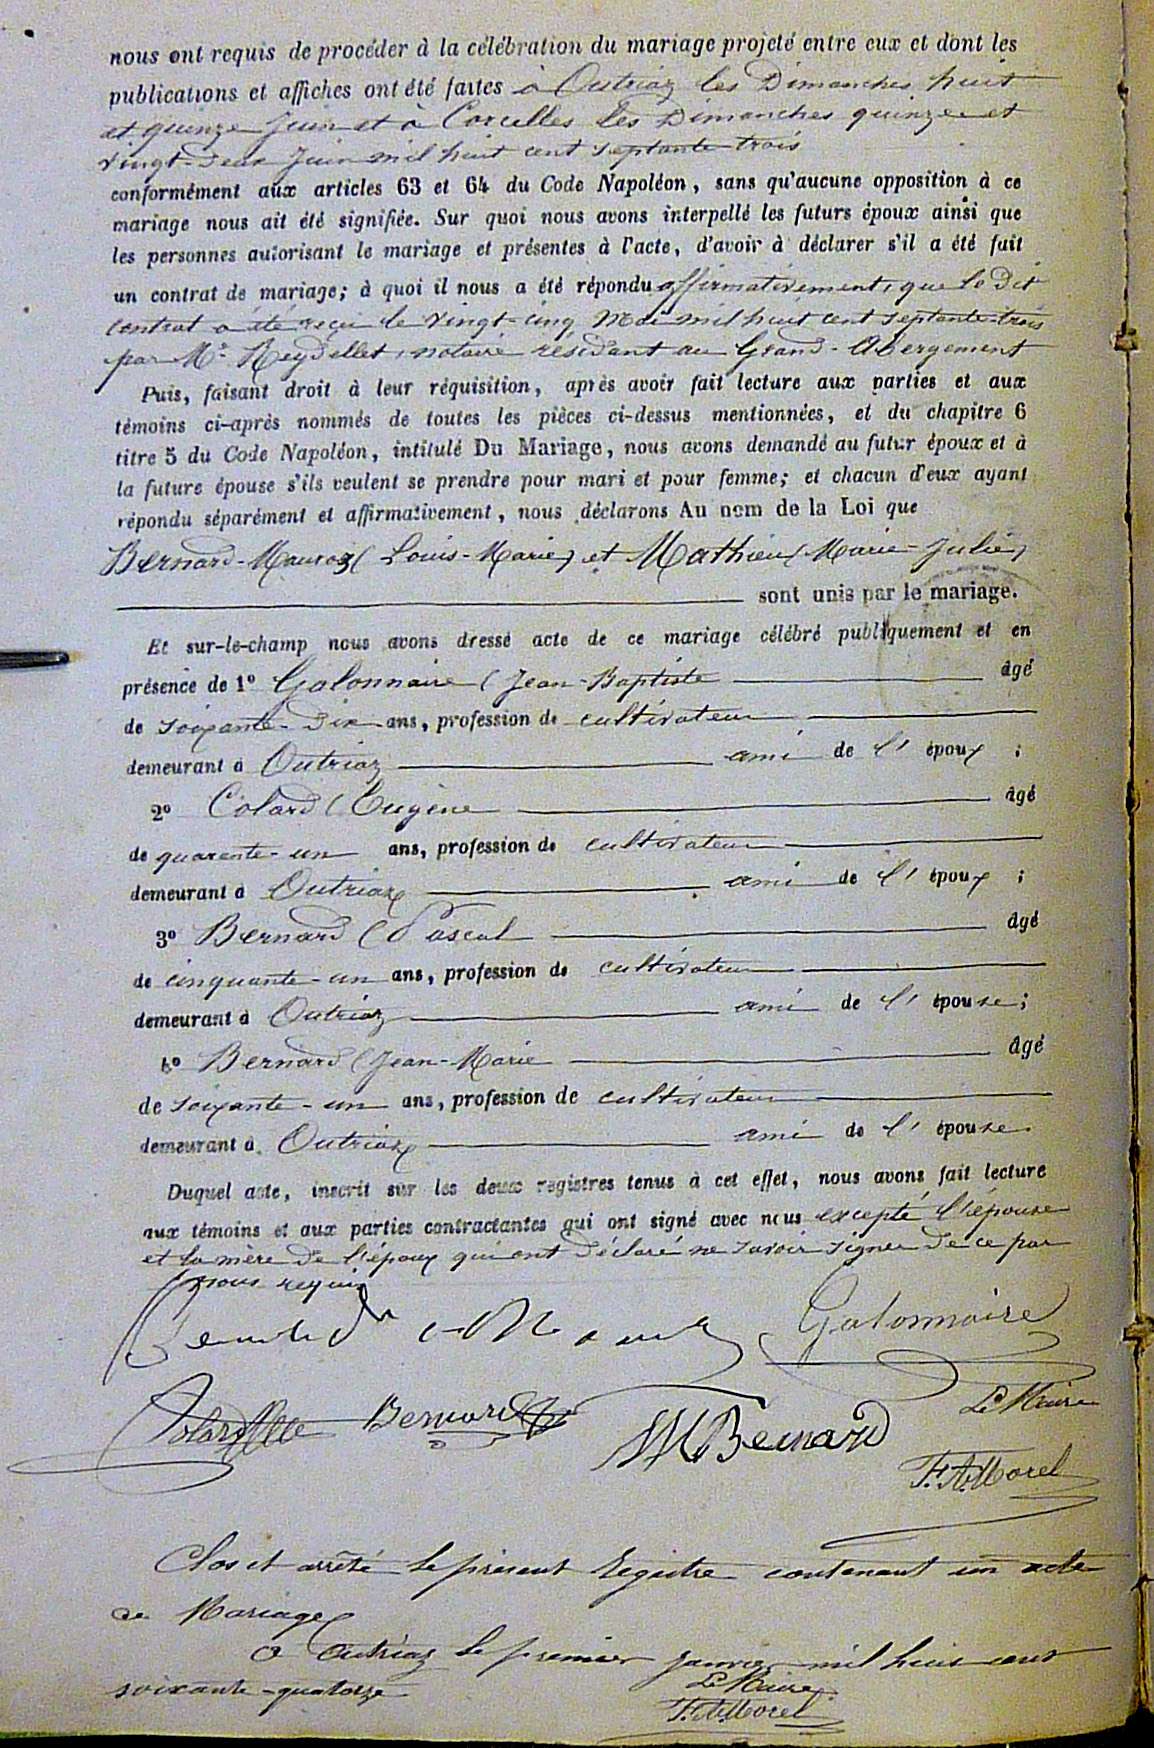 nous ont requis de procéder à la célébration du mariage projeté entre eux et dont les
publications et affiches ont été faites à Outriaz les Dimanches huit
et quinze Juin et à Corcelles les Dimanches quinze et
vingt-deux Juin mil huit cent septante trois
conformément aux articles 63 et 64 du Code Napoléon, sans qu'aucune opposition à ce
mariage nous ait été signifiée. Sur quoi nous avons interpellé les futurs époux ainsi que
les personnes autorisant le mariage et présentes à l'acte, d'avoir à déclarer s'il a été fait
un contrat de mariage; à quoi il nous a été répondu affirmativement, que le dit
contrat a été reçu le vingt-cinq Mai mil huit cent septante-trois
par Me Reydellet, notaire résidant au Grand-Abergement
Puis, faisant droit à leur réquisition, après avoir fait lecture aux parties et aux
témoins ci-après nommés de toutes les pièces ci-dessus mentionnées, et du chapitre 6
titre 5 du Code Napoléon, intitulé Du Mariage, nous avons demandé au futur époux et à
la future épouse s'ils veulent se prendre pour mari et pour femme; et chacun d'eux ayant
répondu séparément et affirmativement, nous déclarons Au nom de la Loi que
Bernard-Mauroz (Louis-Marie) et Mathieu (Marie-Julie)
sont unis par le mariage.
Et sur-le-champ nous avons dressé acte de ce mariage célébré publiquement et en
présence de 1º Galonnaire (Jean-Baptiste âgé
de soixante-dix ans, profession de cultivateur
demeurant à Outriaz ami de l'époux ;
2º Colard (Eugène âgé
de quarante-un ans, profession de cultivateur
demeurant à Outriaz ami de l'époux ;
3º Bernard (Pascal âgé
de cinquante-un ans, profession de cultivateur
demeurant à Outriaz ami de l'épouse;
4º Bernard (Jean-Marie âgé
de soixante-un ans, profession de cultivateur
demeurant à Outriaz ami de l'épouse.
Duquel acte, inscrit sur les deux registres tenus à cet effet, nous avons fait lecture
aux témoins et aux parties contractantes qui ont signé avec nous excepté l'épouse
et la mère de l'époux qui ont déclaré ne savoir signer de ce par
nous requis
Galonnaire
Colard Bernard Bernard Le Maire
F. A. Morel
Clos et arrêté le présent Registre contenant un acte
de Mariage
a Outriaz le premier janvier mil huit cent
soixante-quatorze Le Maire
F. A. Morel